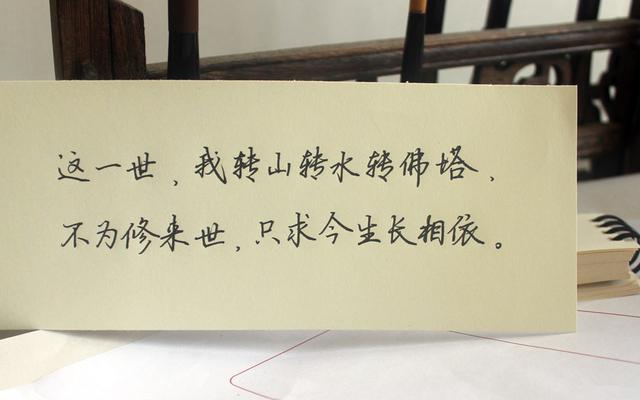 这一世，我转山转水转佛塔，
不为修来世，只求今生长相依。